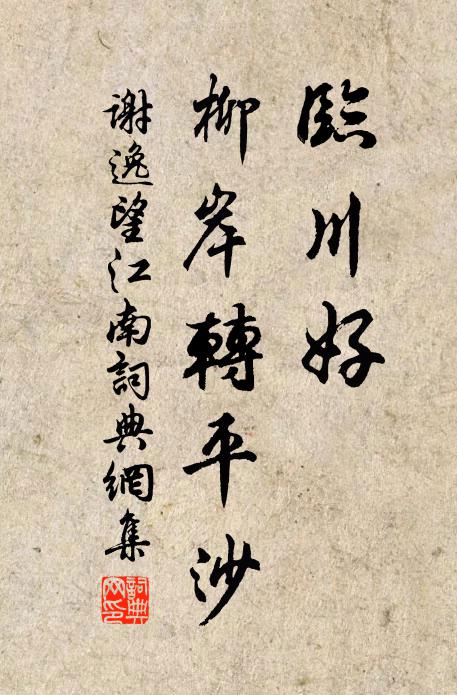 臨川好
柳岸轉平沙
謝逸望江南詞典網集
詞典
网印